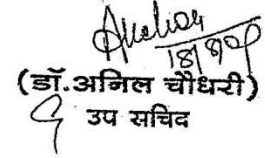 18/8/09
(डॉ.अनिल चौधरी)
उप सचिव